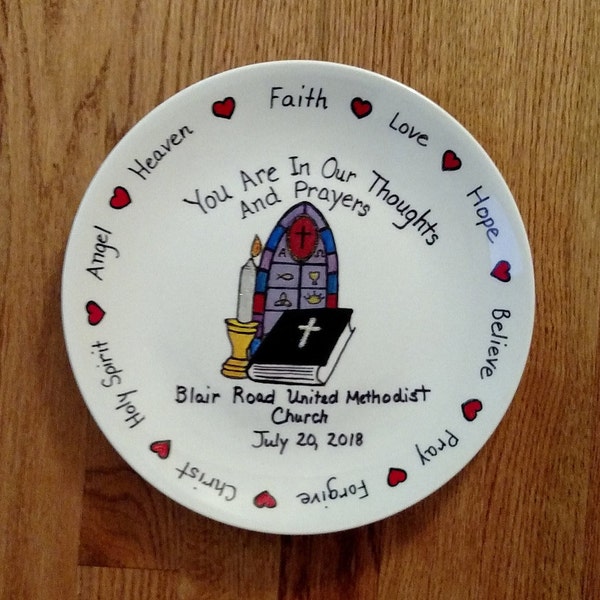 Faith
Love
Hope
Believe
Pray
Forgive
Christ
Holy Spirit
Angel
Heaven
You Are In Our Thoughts
And Prayers
Α Ω
Blair Road United Methodist
Church
July 20, 2018